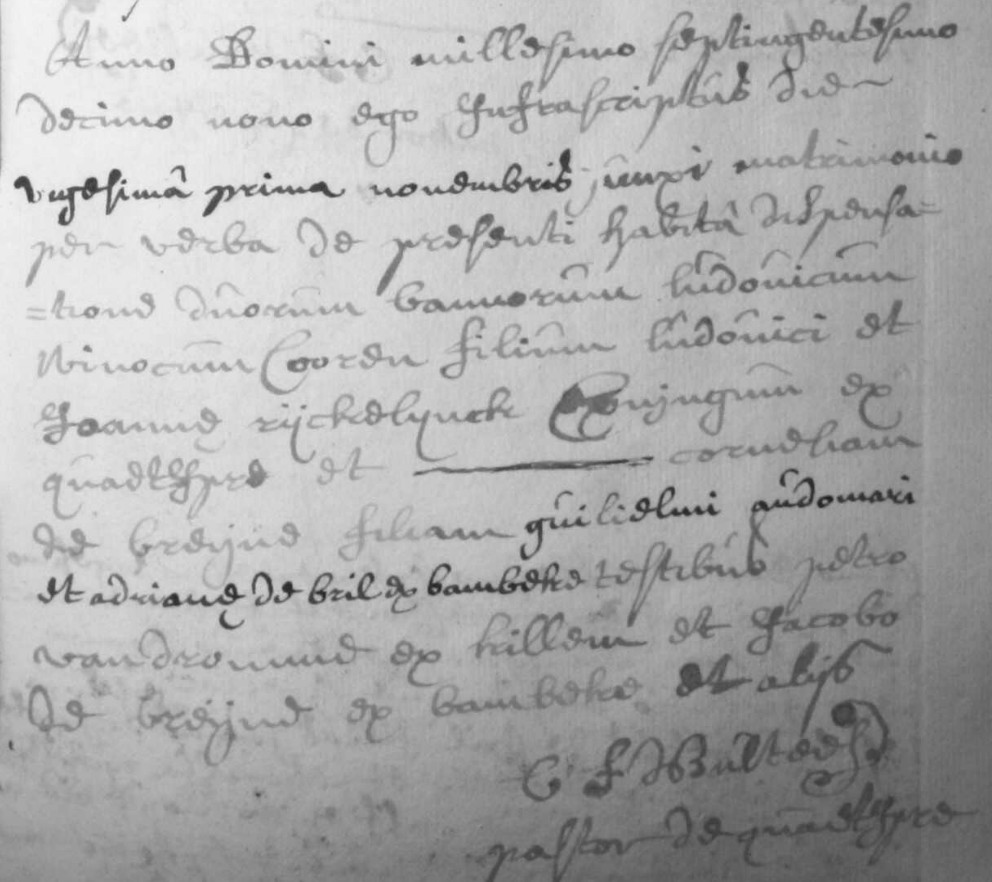 Anno Domini millesimo septingentesimo
decimo nono ego Infrascriptus die
vigesimâ prima novembris junxi matrimonio
per verba de presenti habitâ dispensa=
=tione duorum bannorum ludovicum
Winocum Cooren filium ludovici et
Joannę rijckelynck Conjugum ex
quaethypre et ——— corneliam
de breijne filiam guilielmi audomari
et adrianę de bril ex bambeke testibus petro
vandromme ex killem et Jacobo
de breijne ex bambeke et alijs
pastor de quaethypre